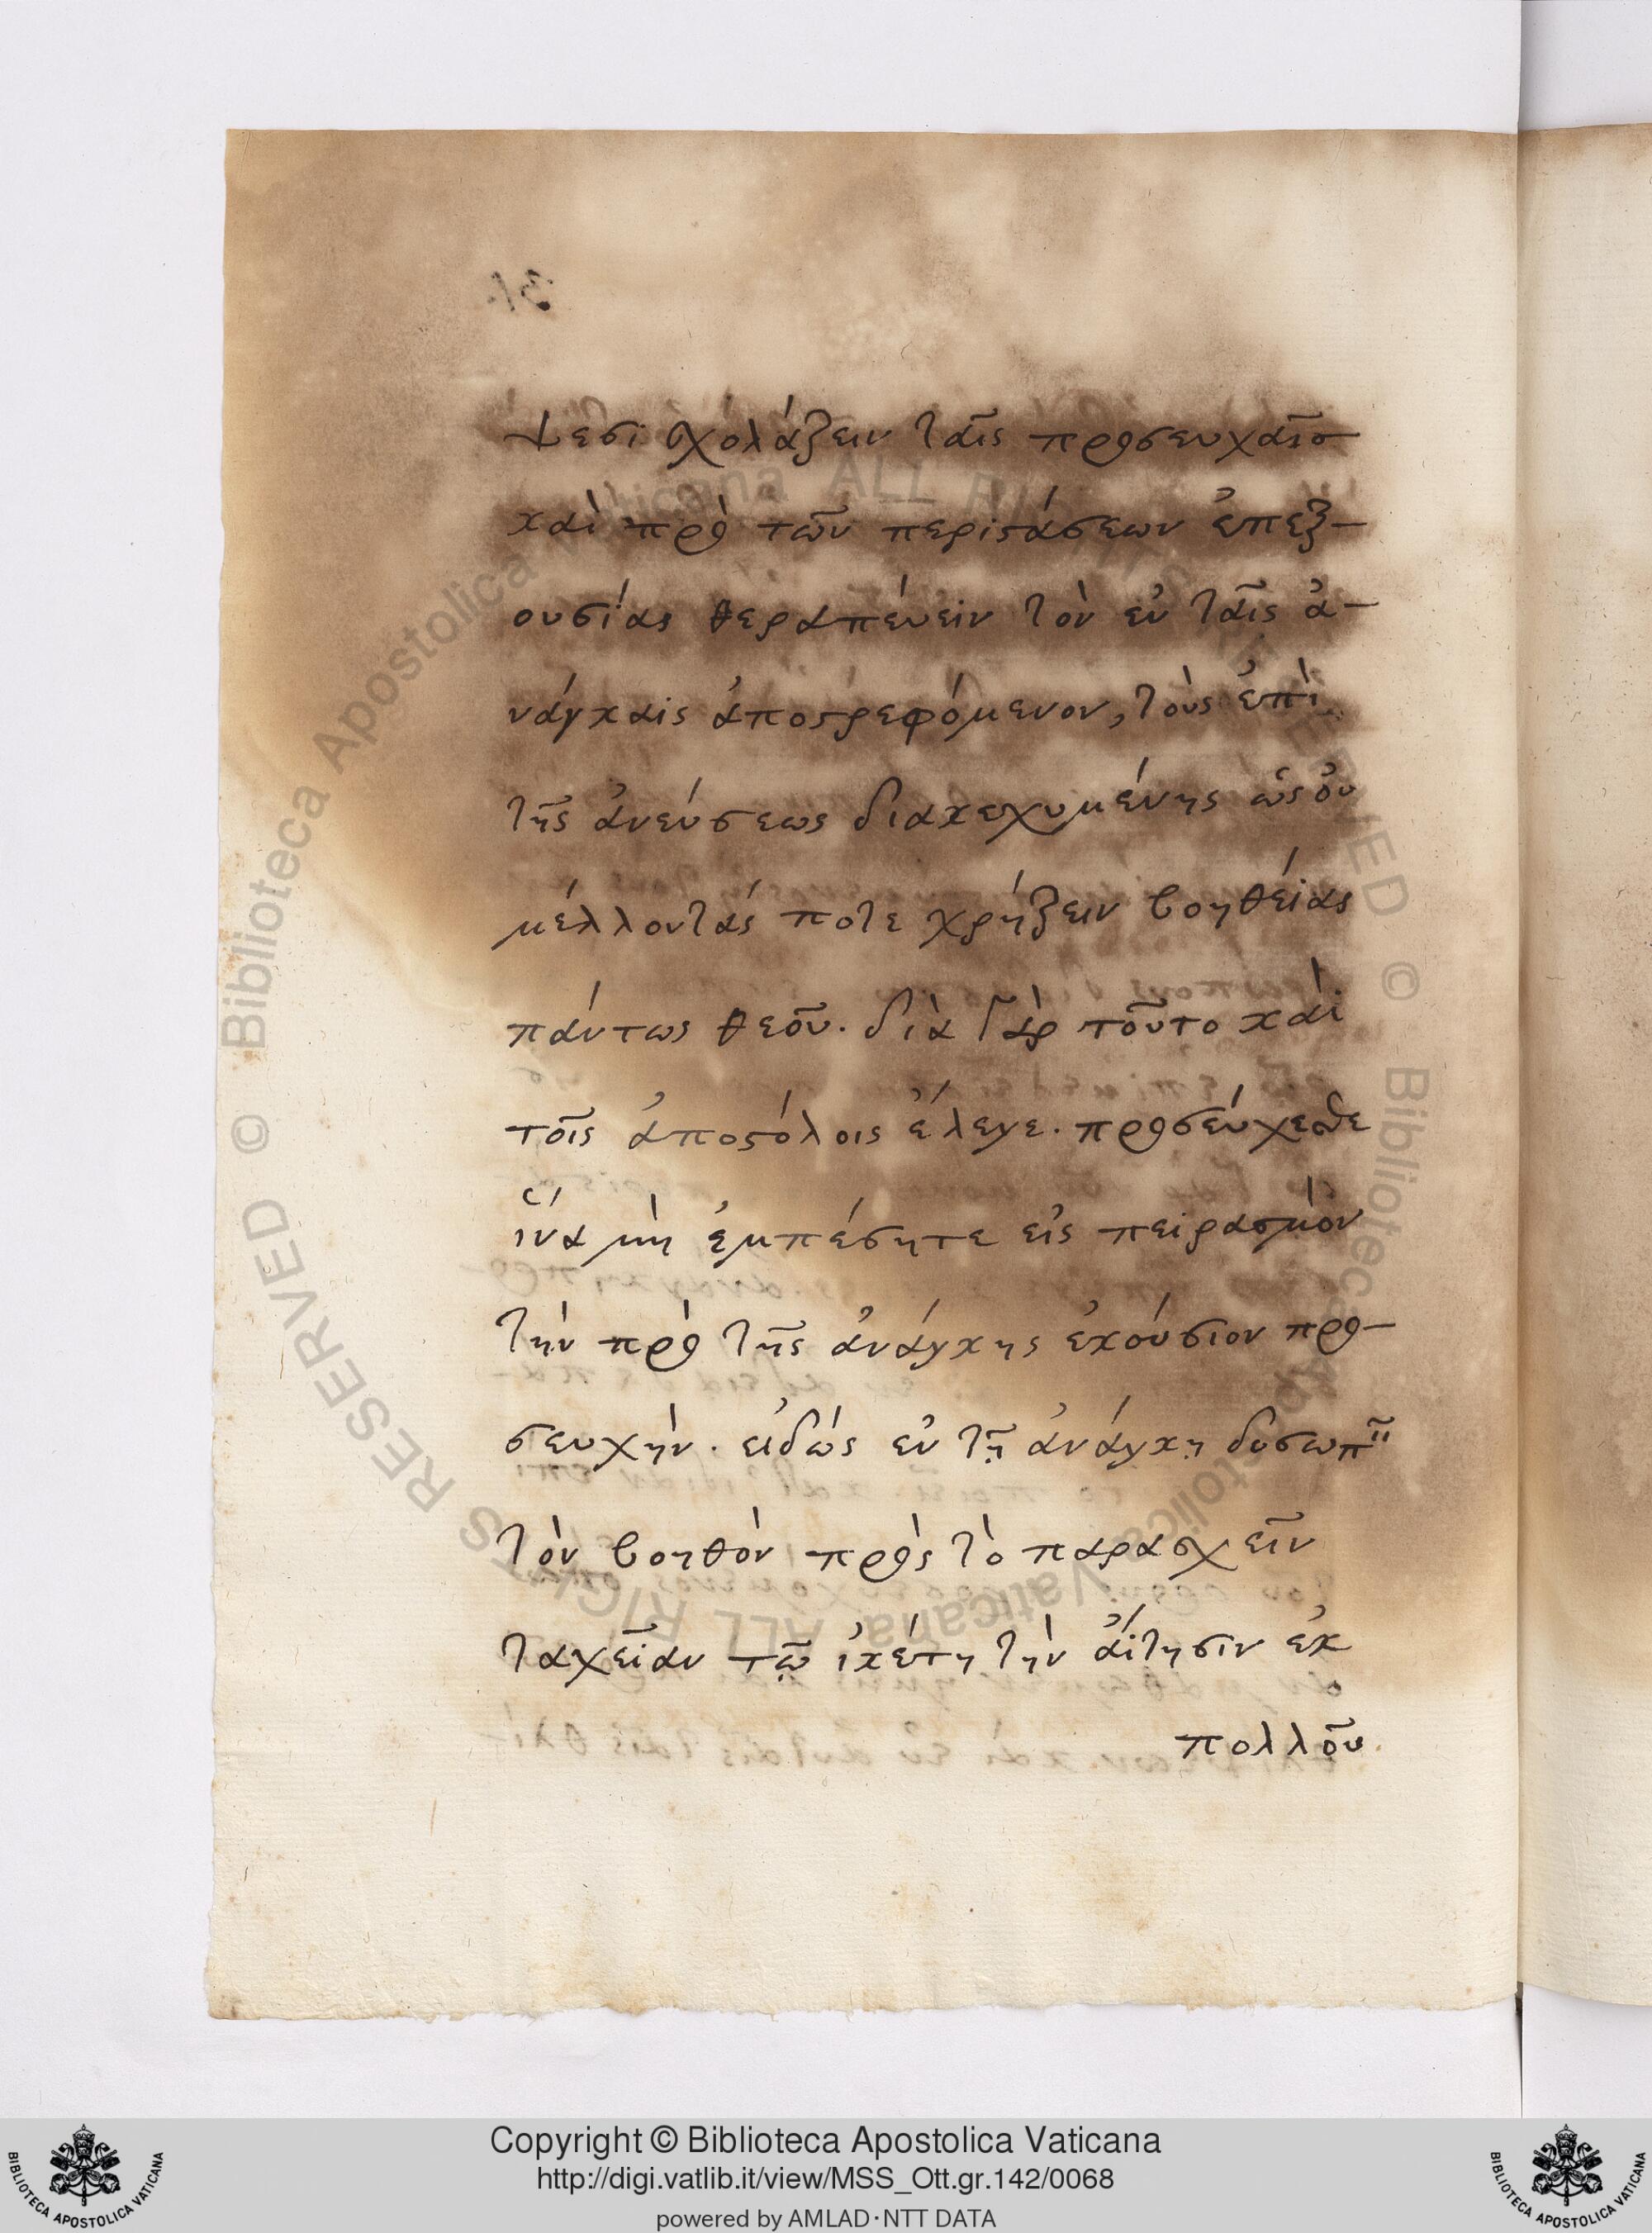 ψεσι σχολάζειν ταῖς προσευχαῖσ
καὶ πρὸ τῶν περιστάσεων ἐπεξ-
ουσίας θεραπεύειν τὸν ἐν ταῖς ἀ-
νάγκαις ἀποστρεφόμενον, τοὺς ἐπὶ
τῆς ἀνεύσεως διακεχυμένης ὡς οὐ
μέλλοντάς ποτε χρήζειν βοηθείας
πάντως θεοῦ. διὰ γὰρ τοῦτο καὶ
τοῖς ἀποστόλοις ἔλεγε. προσεύχεσθε
ἵνα μὴ ἐμπέσητε εἰς πειρασμὸν
τὴν πρὸ τῆς ἀνάγκης ἑκούσιον προ-
σευχὴν. εἰδώς ἐν τῇ ἀνάγκῃ δυσωπ
τὸν βοηθὸν πρὸς τὸ παρασχεῖν
ταχεῖαν τῷ ἱκέτη τὴν αἴτησιν ἐκ
πολλοῦ
31.
© Biblioteca Apostolica Vaticana ALL RIGHTS RESERVED © Biblioteca Apostolica Vaticana ALL RIGHTS RESERVED
Copyright © Biblioteca Apostolica Vaticana
http://digi.vatlib.it/view/MSS_Ott.gr.142/0068
powered by AMLAD·NTT DATA
BIBLIOTECA APOSTOLICA VATICANA
BIBLIOTECA APOSTOLICA VATICANA